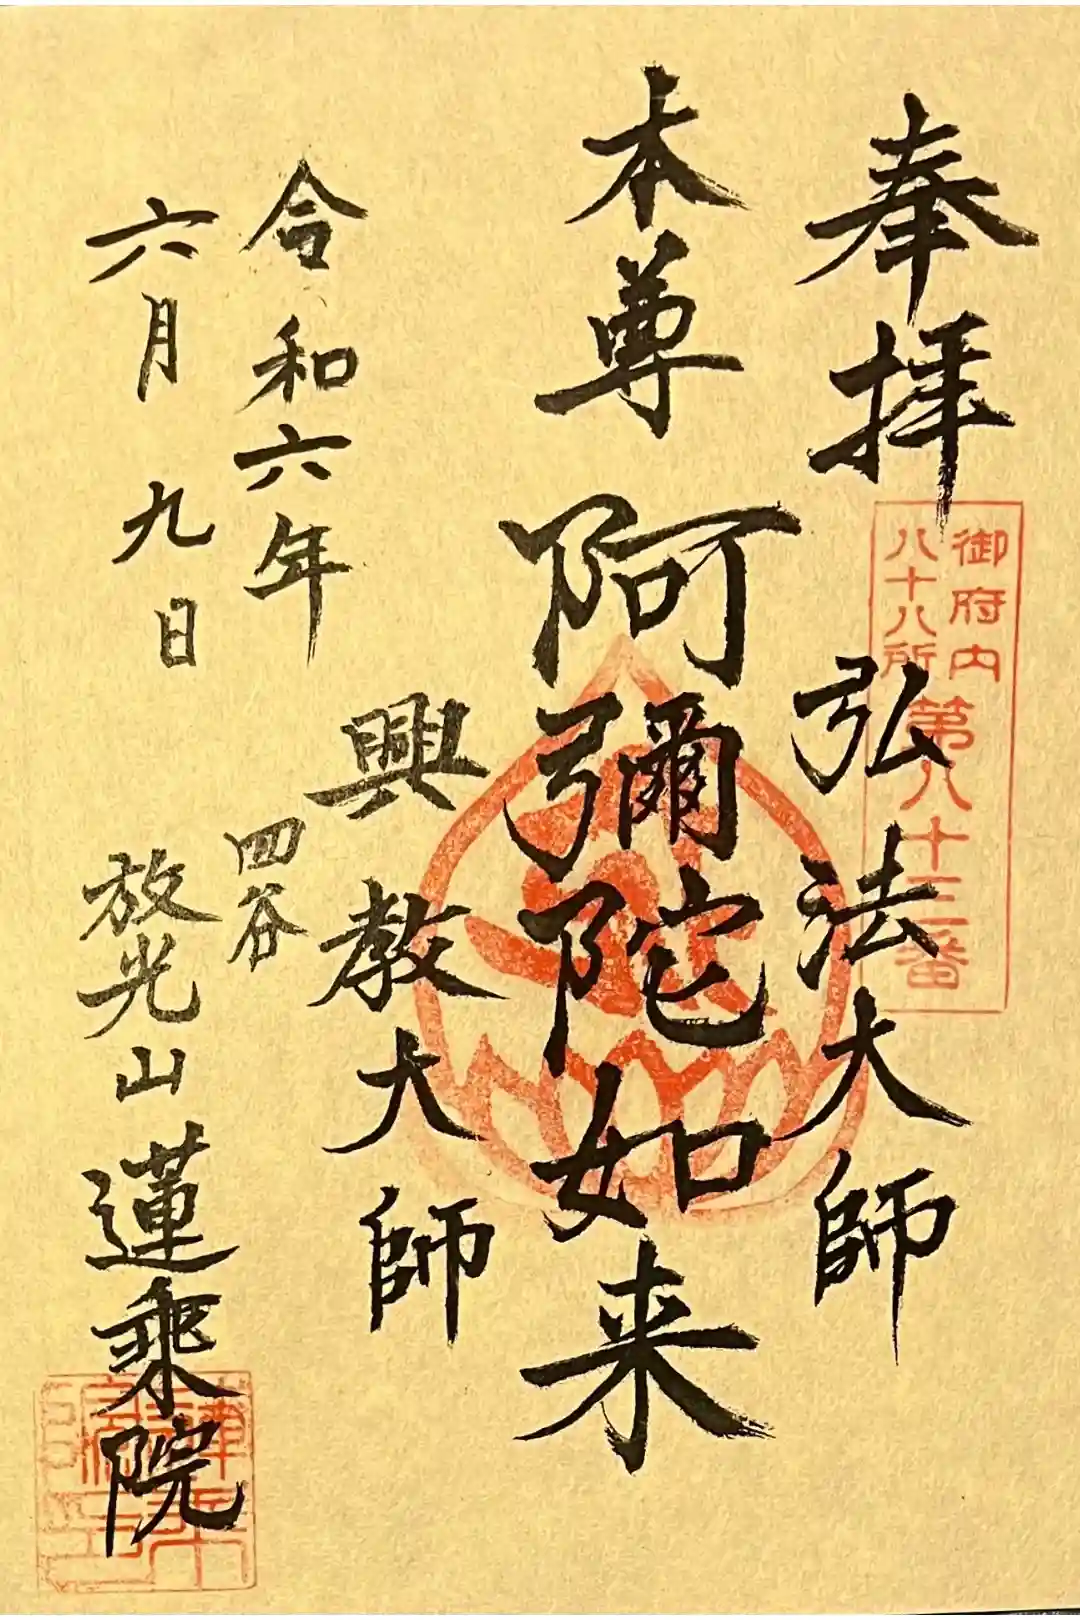 奉拝
御府内
八十八所
第八十三番
弘法大師
本尊 阿彌陀如来
興教大師
令和六年
六月九日
四谷
放光山蓮乗院